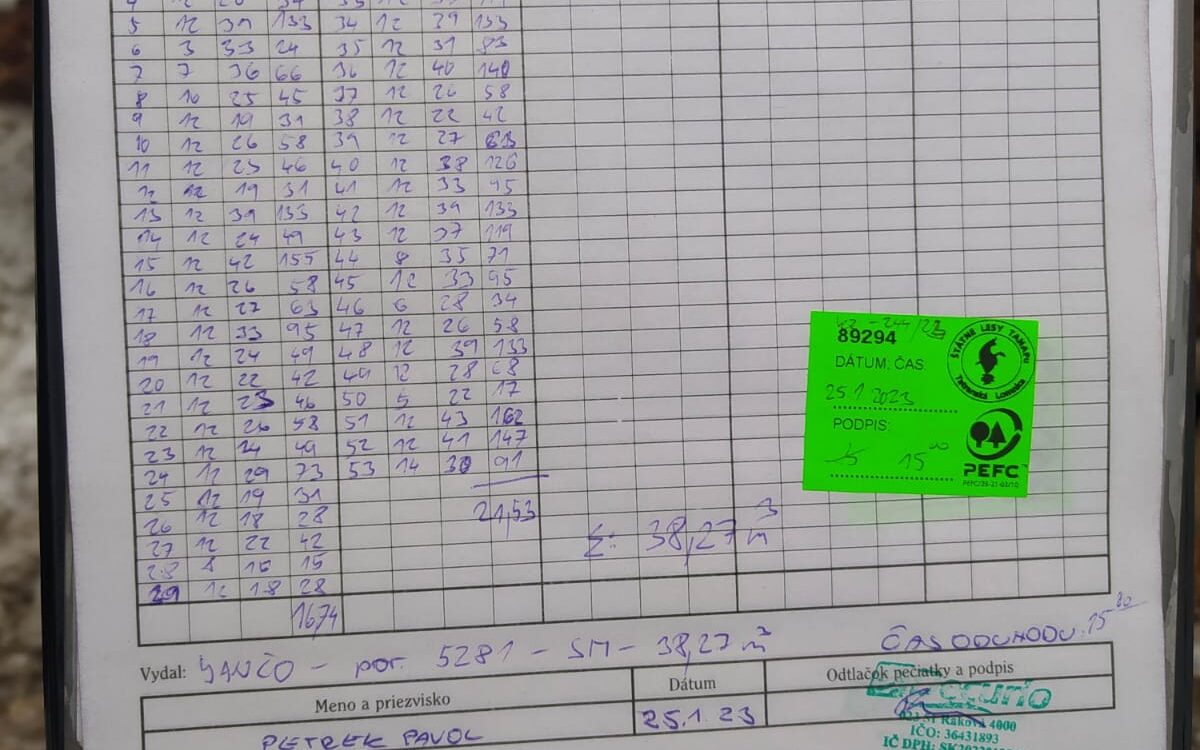 5 12 39 133 34 12 39 133
6 3 33 24 35 12 31 83
7 7 36 66 36 12 40 140
8 10 25 45 37 12 26 58
9 12 19 31 38 12 22 42
10 12 26 58 39 12 27 63
11 12 23 46 40 12 38 126
12 12 19 31 41 12 33 95
13 12 39 133 42 12 39 133
14 12 24 49 43 12 37 119
15 12 42 155 44 8 35 71
16 12 26 58 45 12 33 95
17 12 27 63 46 6 28 34
18 12 33 95 47 12 26 58
19 12 24 49 48 12 39 133
20 12 22 42 49 12 28 68
21 12 23 46 50 5 22 17
22 12 26 58 51 12 43 162
23 12 24 49 52 12 41 147
24 12 29 73 53 14 30 91
25 12 19 31
26 12 18 28
27 12 22 42
28 8 16 15
29 12 18 28
21,53
Σ: 38,27 m³
16,74
89294
DÁTUM, ČAS:
25.1.2023
PODPIS:
15⁰⁰
ŠTÁTNE LESY TANAPU
Tatranská Lomnica
PEFC
Vydal: JANČO - por. 5281 - SM - 38,27 m³
ČAS ODCHODU: 15
Meno a priezvisko
Dátum
Odtlačok pečiatky a podpis
PETREK PAVOL
25.1.23
023 51 Raková 4000
IČO: 36431893
IČ DPH: